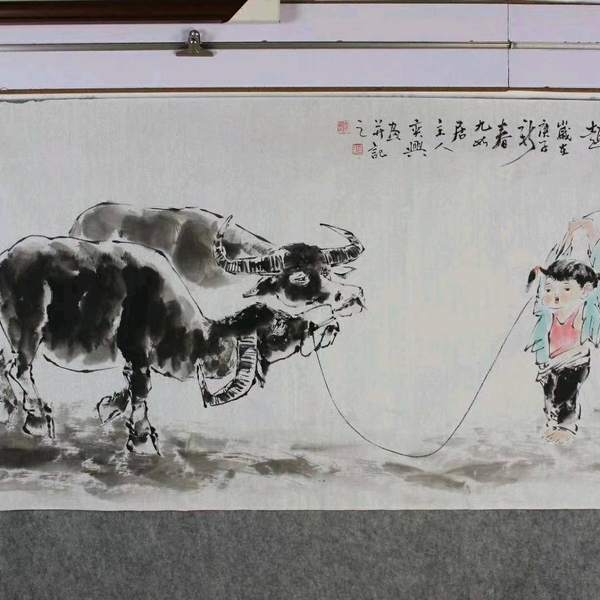 歲在
庚子
新
春
九如
居
主人
乘興
畫
并記
之